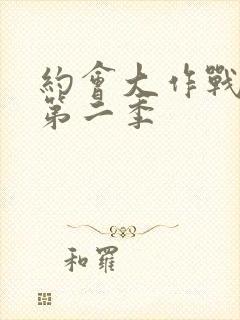 約會大作戰
第二季
和羅